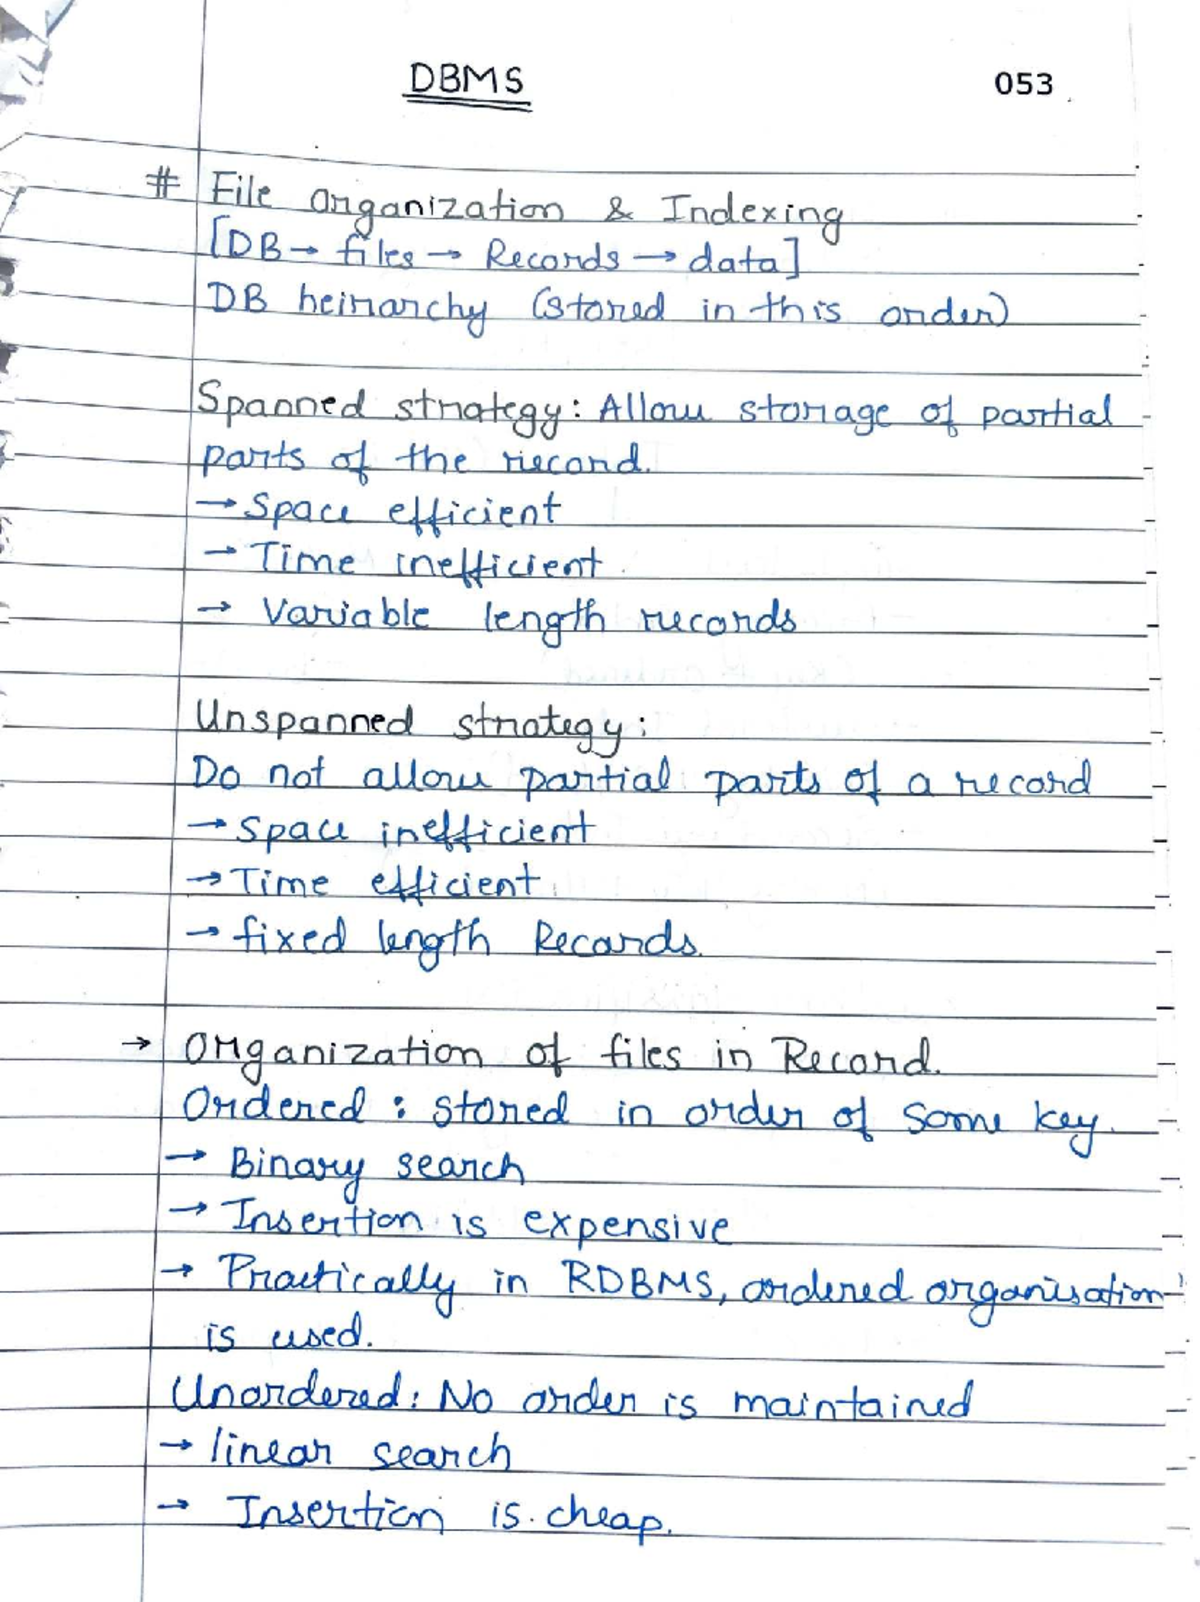 DBMS
053
# File Organization & Indexing
[DB → files → Records → data]
DB heirarchy (stored in this order)
Spanned strategy: Allow storage of partial
parts of the record.
→ Space efficient
→ Time inefficient
→ Variable length records
Unspanned strategy:
Do not allow partial parts of a record
→ Space inefficient
→ Time efficient
→ fixed length Records.
→ Organization of files in Record.
Ordered : stored in order of some key.
→ Binary search
→ Insertion is expensive
→ Practically in RDBMS, ordered organisation
is used.
Unordered: No order is maintained
→ linear search
→ Insertion is cheap.